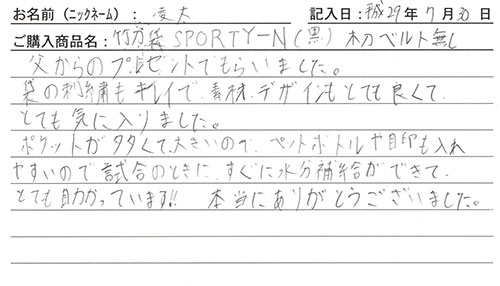 お名前（ニックネーム）： 凌大 記入日：平成29年7月30日
ご購入商品名：竹刀袋SPORTY-N(黒) 初ベルト無し
父からのプレゼントでもらいました。
袋の刺繍もキレイで、素材、デザインもとても良くて、
とても気に入りました。
ポケットが多くて、大きいので、ペットボトルや目印も入れ
やすいので試合のときに、すぐに水分補給ができて、
とても助かっています!! 本当にありがとうございました。